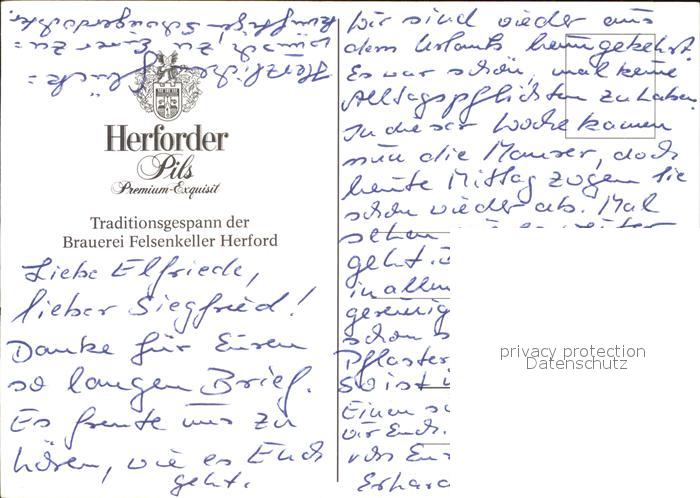 Herforder
Pils
Premium-Exquisit
Traditionsgespann der
Brauerei Felsenkeller Herford
Liebe Elfriede,
lieber Siegfried!
Danke für Euren
so langen Brief.
Es freute uns zu
hören, wie es Euch
geht.
Wir sind wieder aus
dem Urlaub heimgekehrt.
Es war schön, mal keine
Alltagspflichten zu haben.
In dieser Woche kamen
nun die Maurer, doch
heute Mittag zogen sie
schon wieder ab. Mal
sehen
geht.
in allen
schon
Pflaster
So ist
Einen
wir Euch.
Erhard
Herzliche
privacy protection
Datenschutz